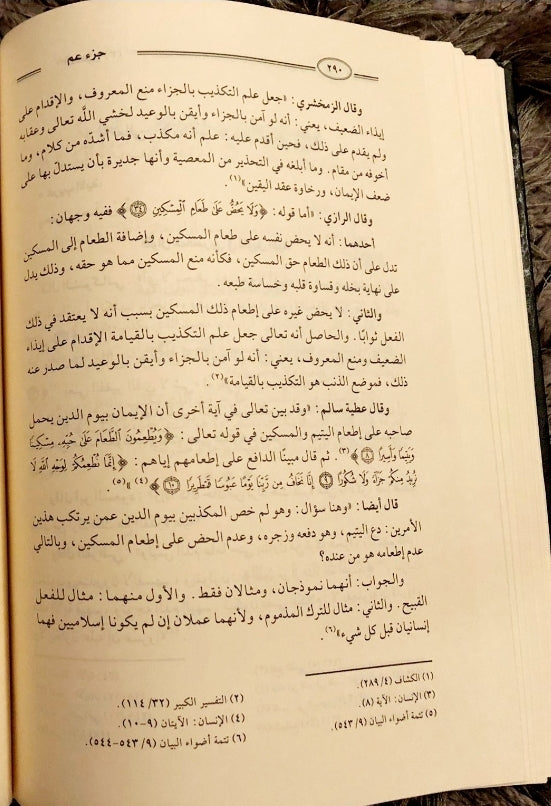 جزء عم
٢٩٠
وقال الزمخشري: «جعل علم التكذيب بالجزاء منع المعروف، والإقدام على
إيذاء الضعيف، يعني: أنه لو آمن بالجزاء وأيقن بالوعيد لخشي اللَّه تعالى وعقابه
ولم يقدم على ذلك، فحين أقدم عليه: علم أنه مكذب، فما أشدّه من كلام، وما
أخوفه من مقام. وما أبلغه في التحذير من المعصية وأنها جديرة بأن يستدلّ بها على
ضعف الإيمان، ورخاوة عقد اليقين»(١).
وقال الرازي: «أما قوله: ﴿وَلَا يَحُضُّ عَلَىٰ طَعَامِ ٱلْمِسْكِينِ ۝٣٤﴾ ففيه وجهان:
أحدهما: أنه لا يحض نفسه على طعام المسكين، وإضافة الطعام إلى المسكين
تدل على أن ذلك الطعام حق المسكين، فكأنه منع المسكين مما هو حقه، وذلك يدل
على نهاية بخله وقساوة قلبه وخساسة طبعه.
والثاني: لا يحض غيره على إطعام ذلك المسكين بسبب أنه لا يعتقد في ذلك
الفعل ثوابًا. والحاصل أنه تعالى جعل علم التكذيب بالقيامة الإقدام على إيذاء
الضعيف ومنع المعروف، يعني: أنه لو آمن بالجزاء وأيقن بالوعيد لما صدر عنه
ذلك، فموضع الذنب هو التكذيب بالقيامة»(٢).
وقال عطية سالم: «وقد بين تعالى في آية أخرى أن الإيمان بيوم الدين يحمل
صاحبه على إطعام اليتيم والمسكين في قوله تعالى: ﴿وَيُطْعِمُونَ ٱلطَّعَامَ عَلَىٰ حُبِّهِۦ مِسْكِينًا
وَيَتِيمًا وَأَسِيرًا ۝٨﴾(٣). ثم قال مبينًا الدافع على إطعامهم إياهم: ﴿إِنَّمَا نُطْعِمُكُمْ لِوَجْهِ ٱللَّهِ لَا
نُرِيدُ مِنكُمْ جَزَآءً وَلَا شُكُورًا ۝٩ إِنَّا نَخَافُ مِن رَّبِّنَا يَوْمًا عَبُوسًا قَمْطَرِيرًا ۝١٠﴾(٤)»(٥).
قال أيضا: «وهنا سؤال: وهو لم خص المكذبين بيوم الدين عمن يرتكب هذين
الأمرين: دع اليتيم، وهو دفعه وزجره، وعدم الحض على إطعام المسكين، وبالتالي
عدم إطعامه هو من عنده؟
والجواب: أنهما نموذجان، ومثالان فقط. والأول منهما: مثال للفعل
القبيح. والثاني: مثال للترك المذموم، ولأنهما عملان إن لم يكونا إسلاميين فهما
إنسانيان قبل كل شيء»(٦).
(١) الكشاف (٤/ ٢٨٩).
(٢) التفسير الكبير (٣٢/ ١١٤).
(٣) الإنسان: الآية (٨).
(٤) الإنسان: الآيتان (٩-١٠).
(٥) تتمة أضواء البيان (٩/ ٥٤٣).
(٦) تتمة أضواء البيان (٩/ ٥٤٣-٥٤٤).